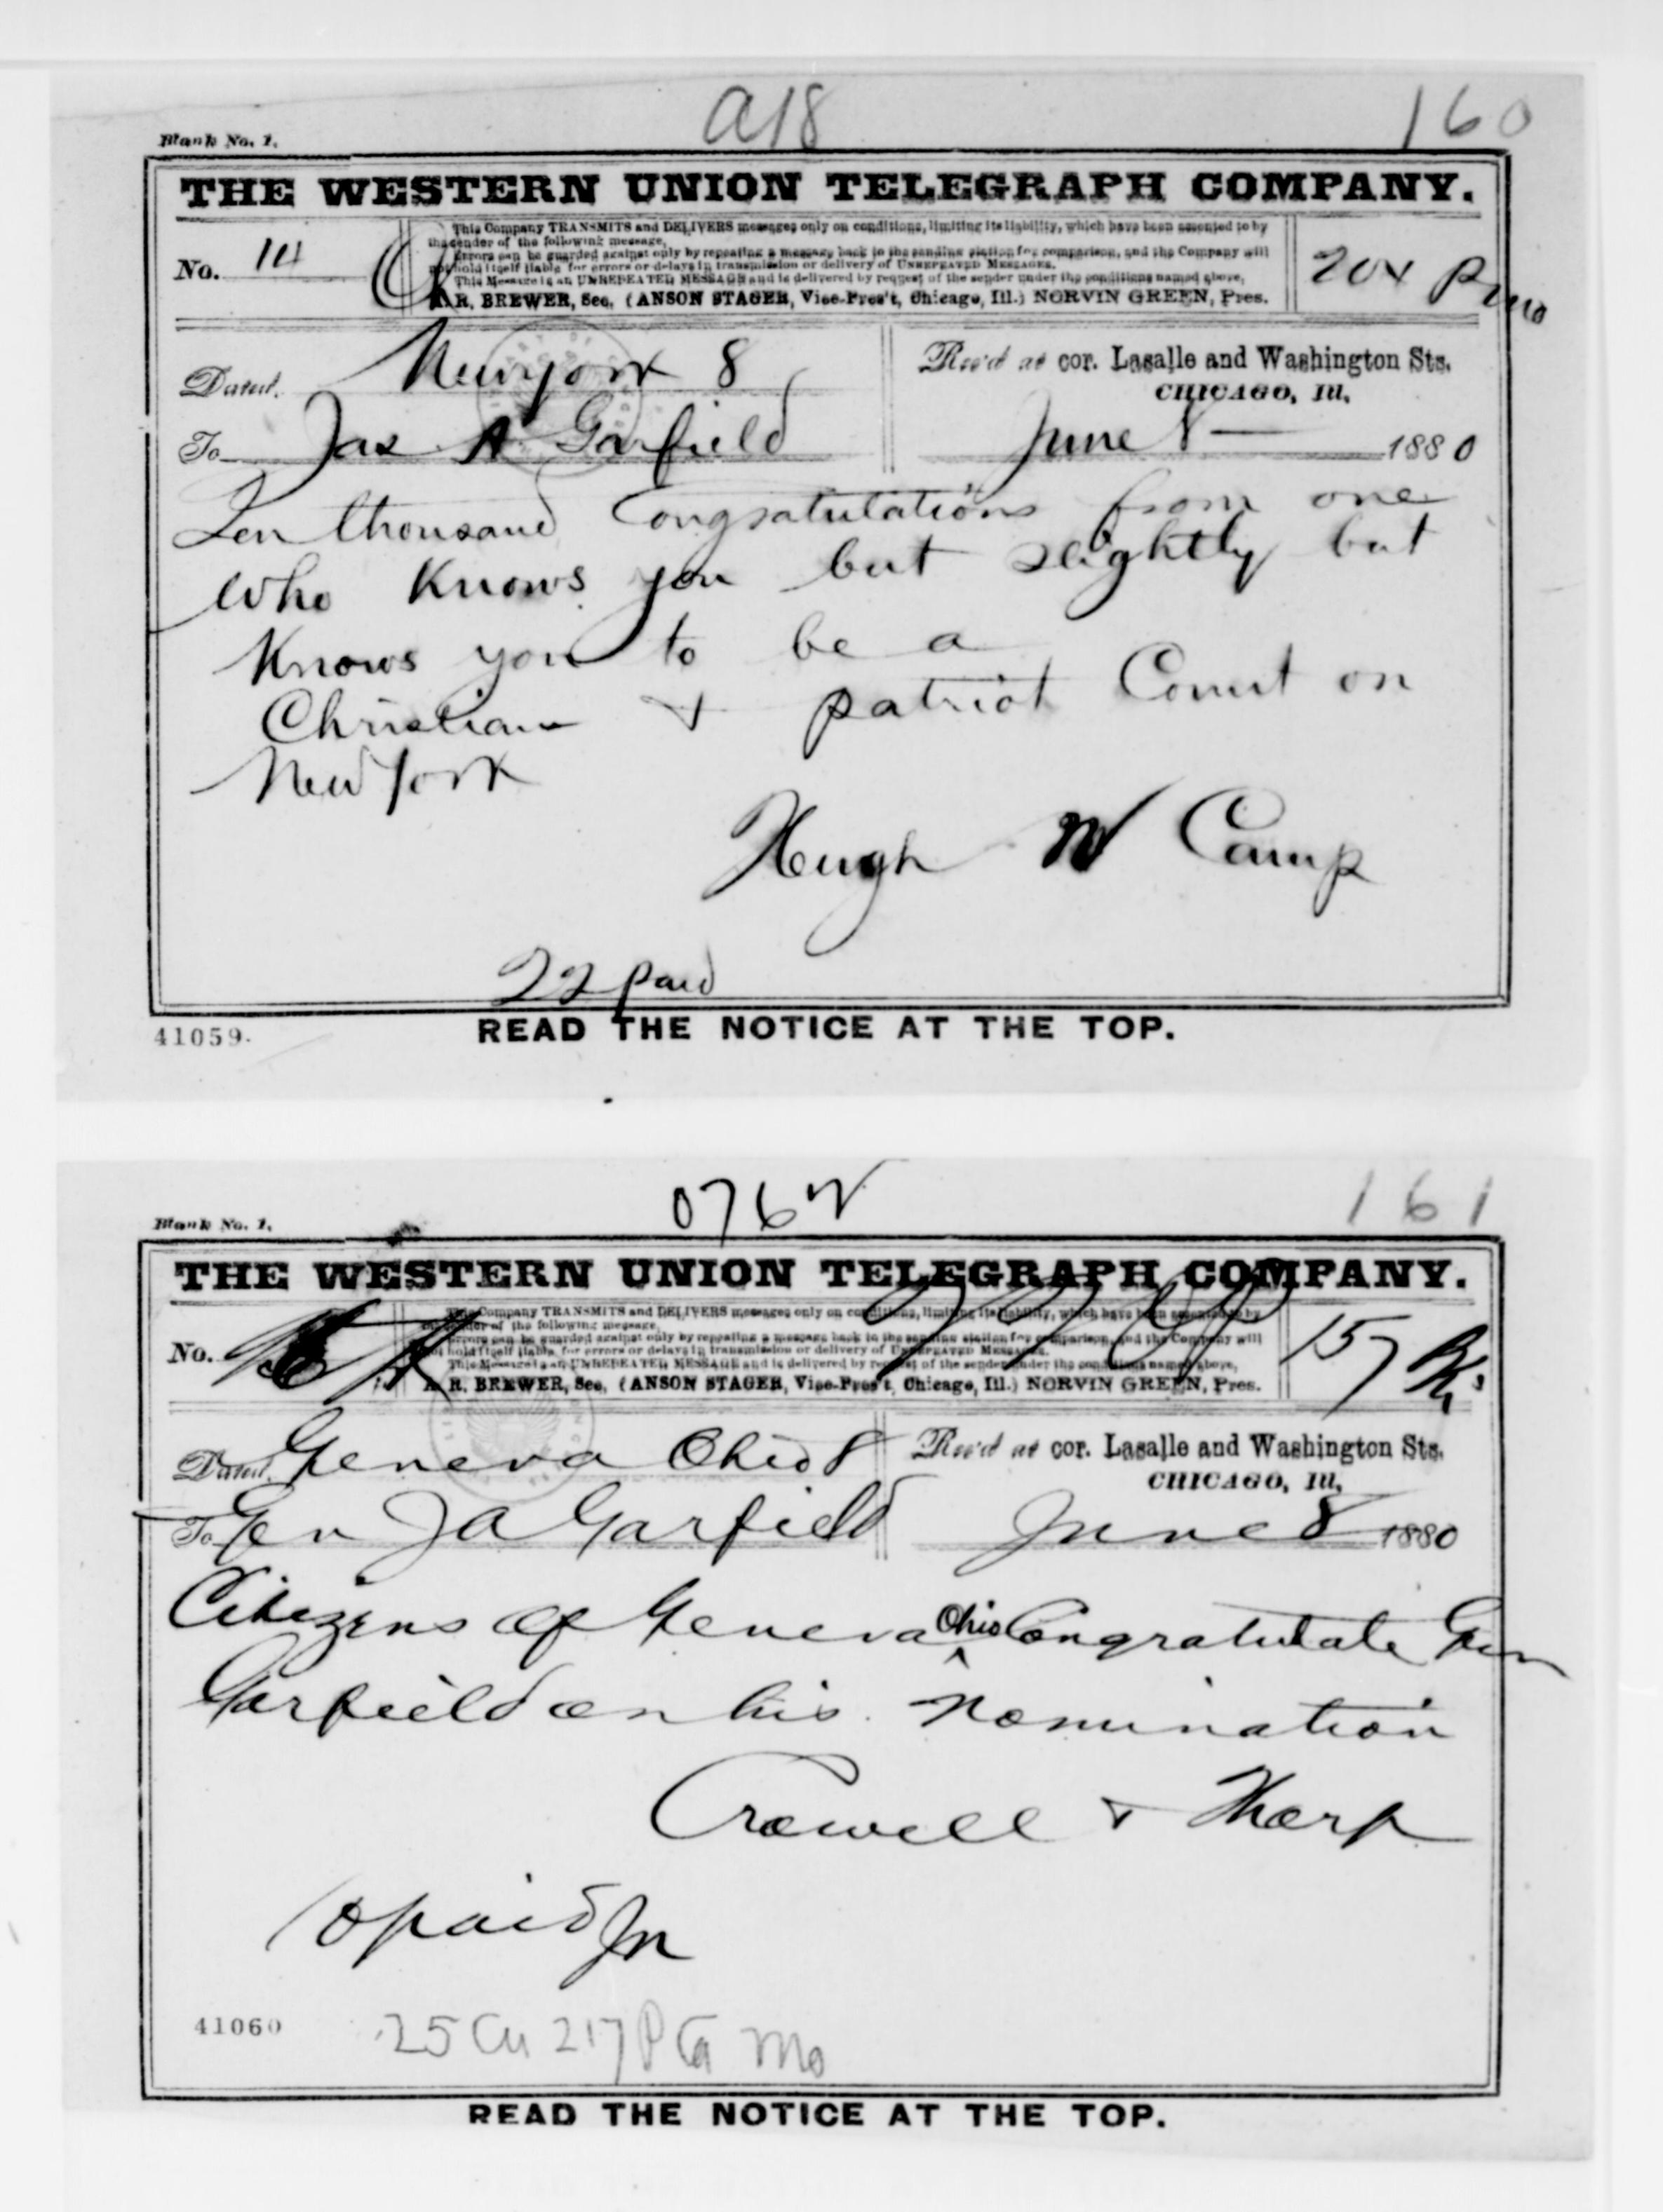 a18
160
Blank No. 1.
THE WESTERN UNION TELEGRAPH COMPANY.
This Company TRANSMITS and DELIVERS messages only on conditions, limiting its liability, which have been assented to by
the sender of the following message.
Errors can be guarded against only by repeating a message back to the sending station for comparison, and the Company will
not hold itself liable for errors or delays in transmission or delivery of UNREPEATED MESSAGES.
This Message is an UNREPEATED MESSAGE and is delivered by request of the sender under the conditions named above,
A. R. BREWER, Sec. (ANSON STAGER, Vice-Pres't, Chicago, Ill.) NORVIN GREEN, Pres.
No. 14
204
Dated. Newyork 8
Rec'd at cor. Lasalle and Washington Sts.
CHICAGO, Ill.
To Jas A Garfield
June 8 1880
Ten thousand Congratulations from one
who Knows you but slightly but
Knows you to be a
Christian & patriot Count on
New York
Hugh N Camp
22 paid
41059.
READ THE NOTICE AT THE TOP.
161
Blank No. 1.
THE WESTERN UNION TELEGRAPH COMPANY.
This Company TRANSMITS and DELIVERS messages only on conditions, limiting its liability, which have been assented to by
the sender of the following message.
Errors can be guarded against only by repeating a message back to the sending station for comparison, and the Company will
not hold itself liable for errors or delays in transmission or delivery of UNREPEATED MESSAGES.
This Message is an UNREPEATED MESSAGE and is delivered by request of the sender under the conditions named above,
A. R. BREWER, Sec. (ANSON STAGER, Vice-Pres't, Chicago, Ill.) NORVIN GREEN, Pres.
No.
157
Dated. Geneva Ohio 8
Rec'd at cor. Lasalle and Washington Sts.
CHICAGO, Ill.
To Gen J A Garfield
June 8 1880
Citizens of Geneva Ohio Congratulate Gen
Garfield on his Nomination
Crowell & Thorp
10 paid
41060
25 Cu 217 P Ga Mo
READ THE NOTICE AT THE TOP.